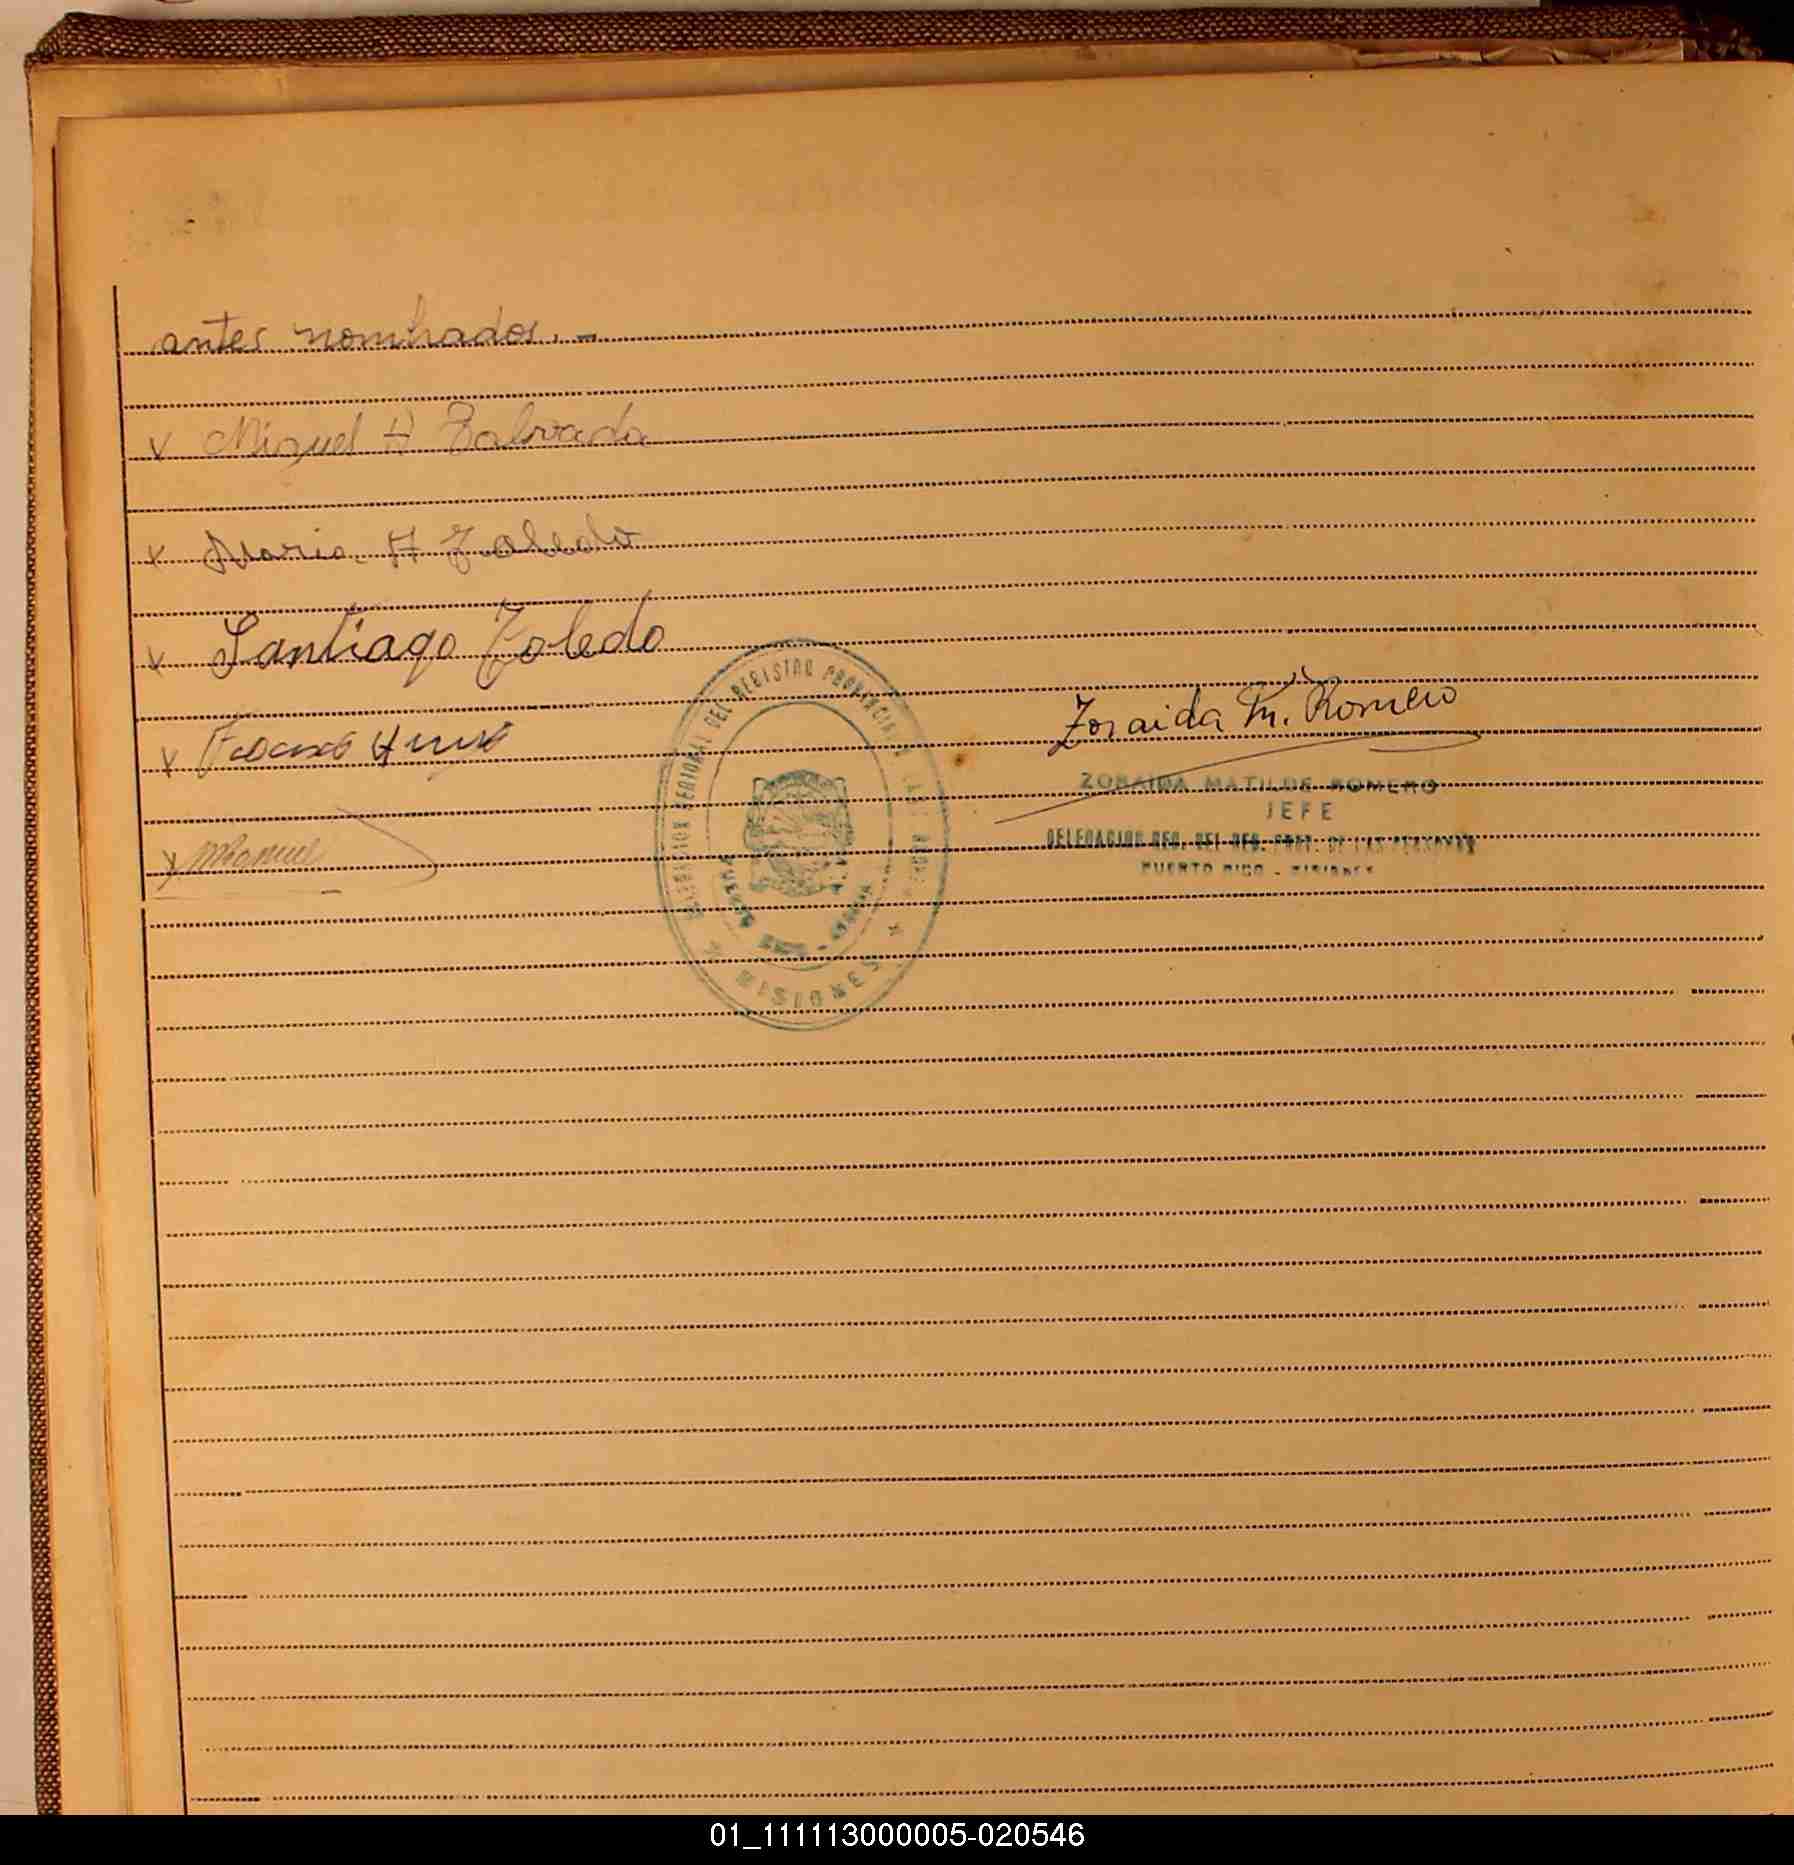 antes nombrados. -
x Miguel A Zalvada
x Maria A Toledo
x Santiago Toledo
x
x Manuel
DELEGACION SECCIONAL DEL REGISTRO PROVINCIAL DE LAS PERSONAS
PUERTO RICO -
* MISIONES *
Zoraida M. Romero
ZORAIDA MATILDE ROMERO
JEFE
DELEGACION REG. DEL REG. PROV. DE LAS PERSONAS
PUERTO RICO - MISIONES
01_111113000005-020546